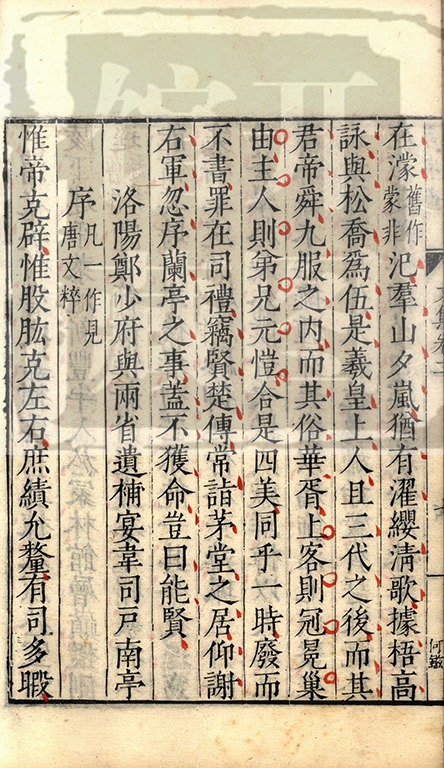 在濛舊作蒙非汜羣山夕嵐猶有濯纓清歌據梧高
詠與松喬爲伍是羲皇上人且三代之後而其
君帝舜九服之内而其俗華胥上客則冠冕巢
由主人則第兄元愷合是四美同乎一時廢而
不書罪在司禮竊賢楚傳常詣茅堂之居仰謝
右軍忽序蘭亭之事蓋不獲命豈曰能賢
洛陽鄭少府與兩省遺補宴韋司戶南亭
序凡一作見唐文粹
惟帝克辟惟股肱克左右庶績允釐有司多暇